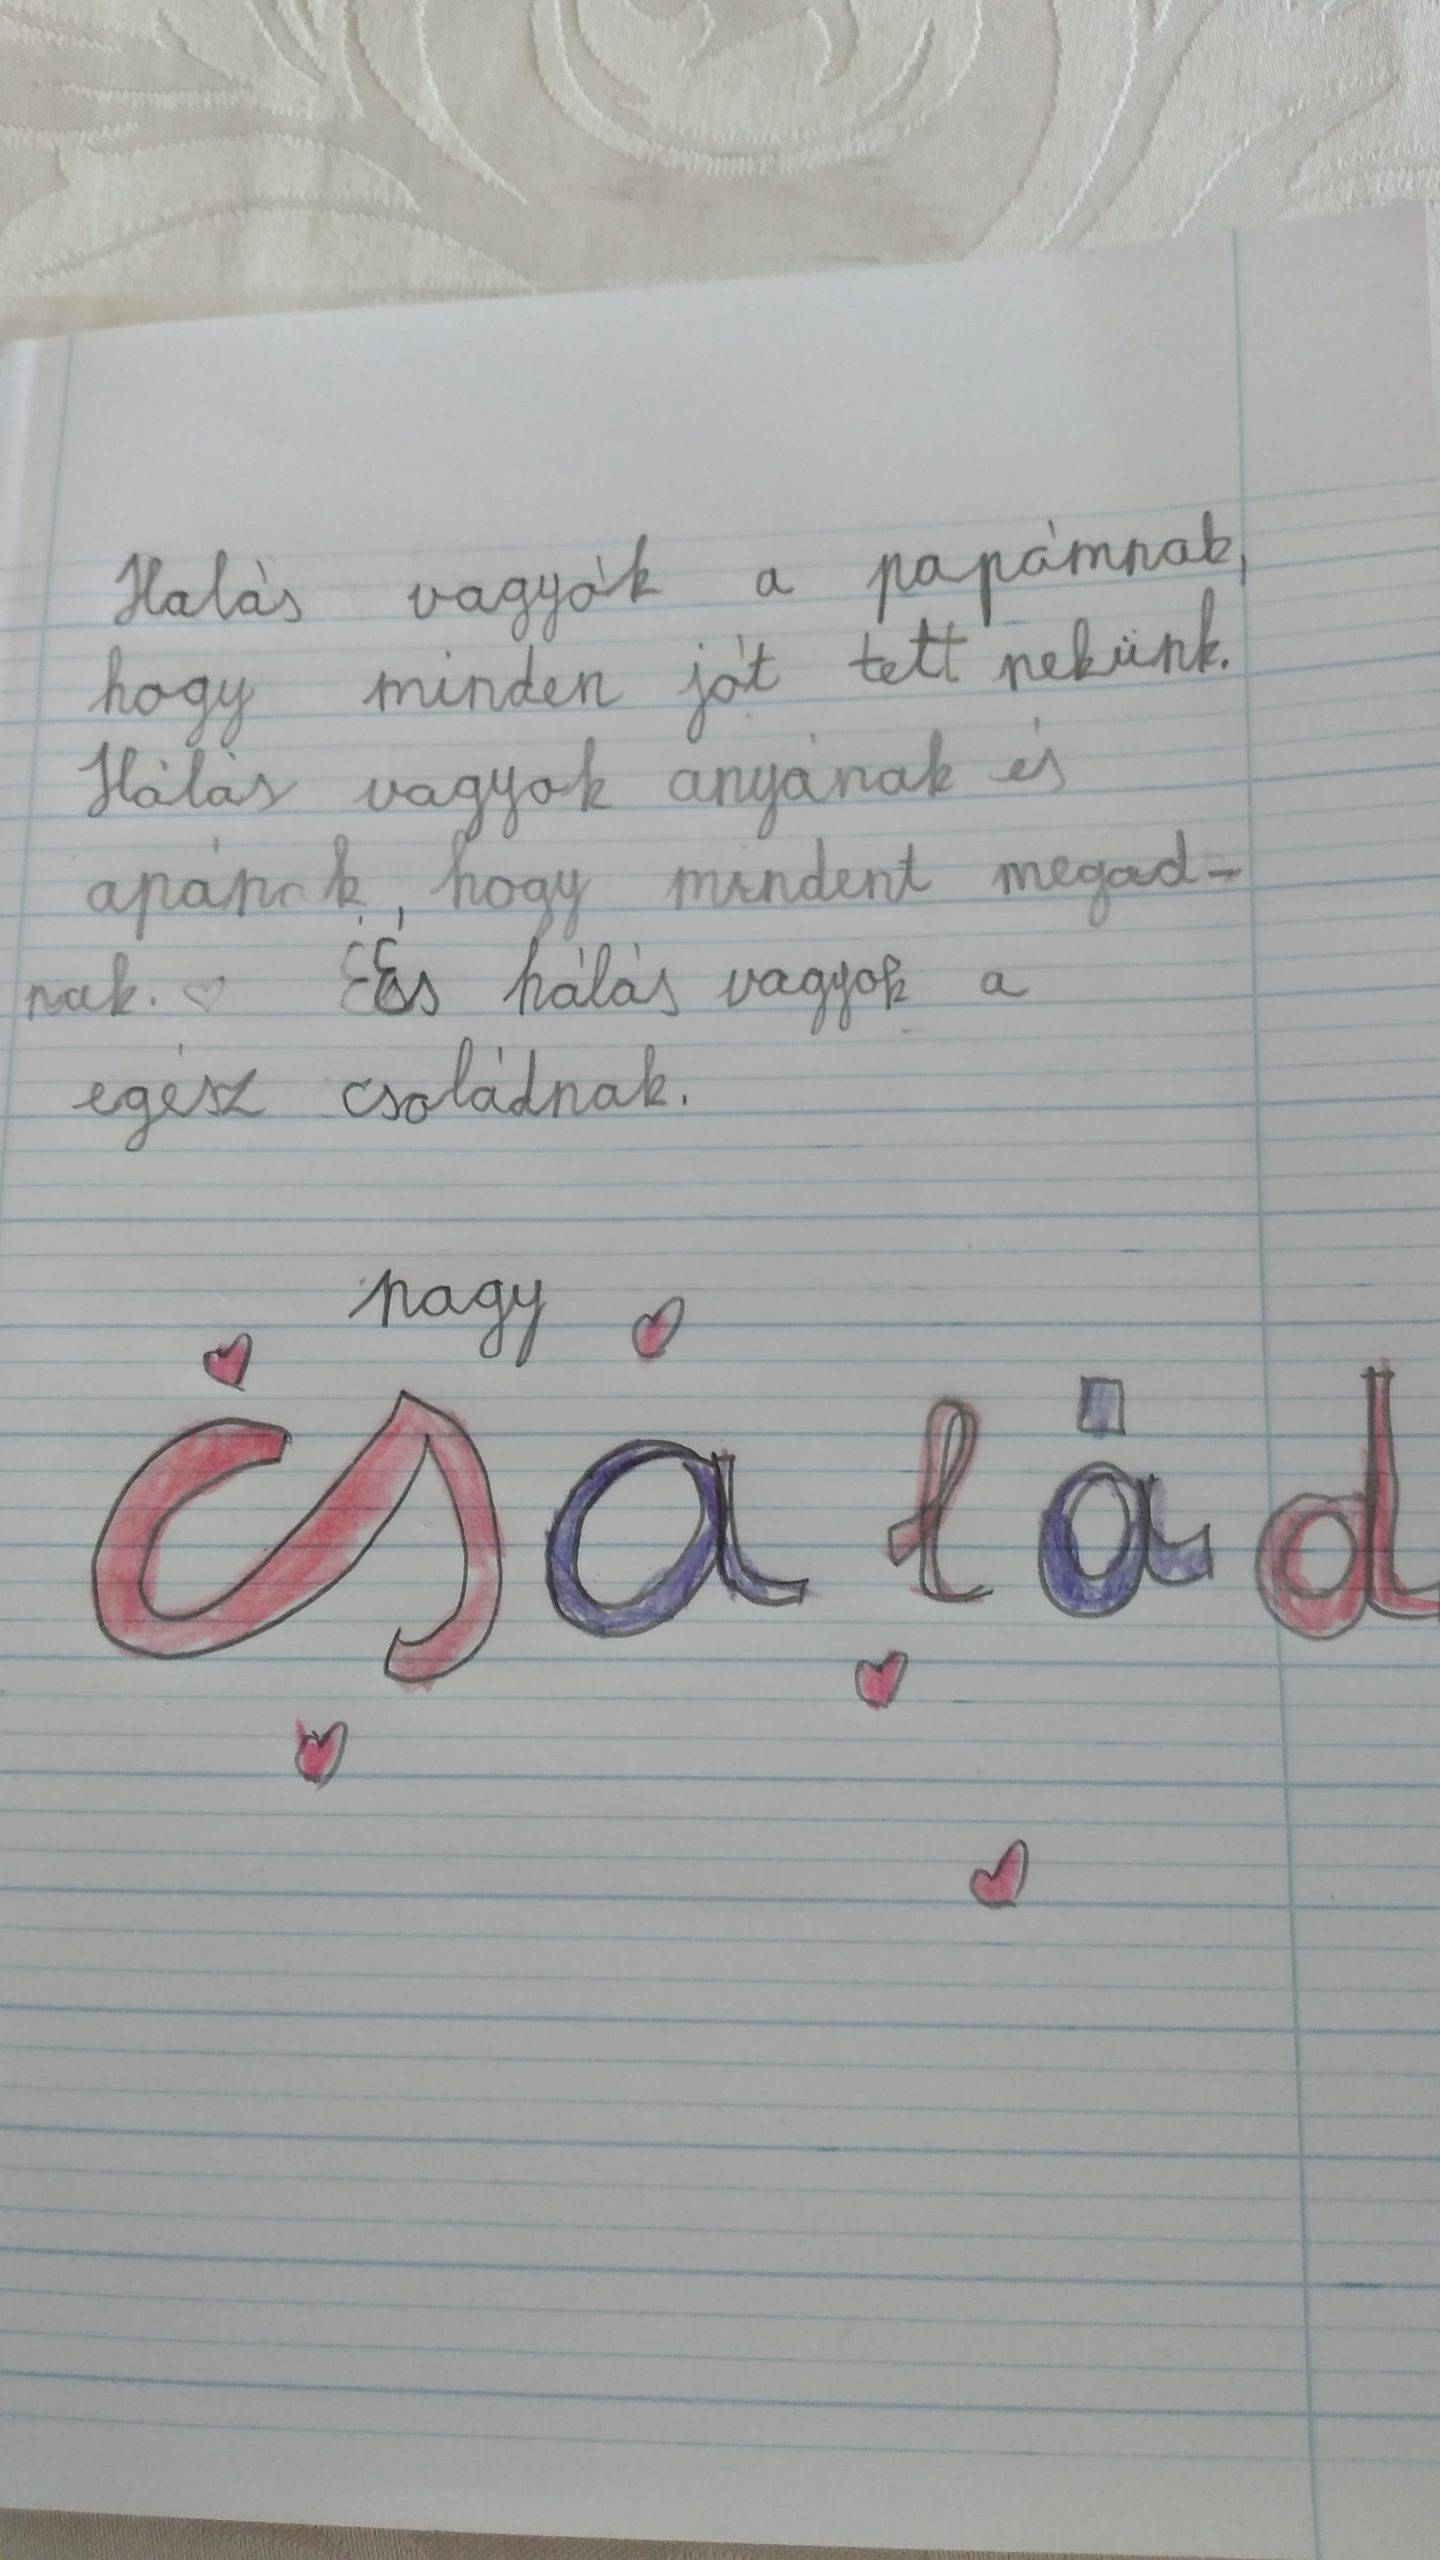 Halás vagyók a papámnak,
hogy minden jót tett nekünk.
Hálás vagyok anyának és
apának, hogy mindent megad-
nak. ♡ És hálás vagyok a
egész családnak.
nagy
család